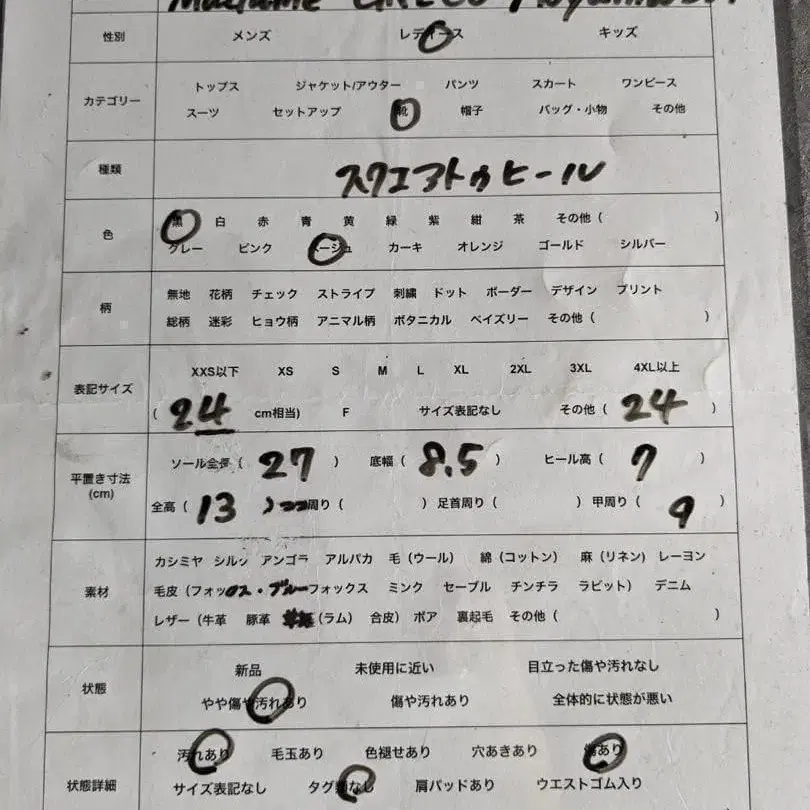 Madame GRECO
性別 メンズ レディース キッズ
カテゴリー トップス ジャケット/アウター パンツ スカート ワンピース
スーツ セットアップ 靴 帽子 バッグ・小物 その他
種類 スクエアトゥヒール
色 黒 白 赤 青 黄 緑 紫 紺 茶 その他 ( )
グレー ピンク ベージュ カーキ オレンジ ゴールド シルバー
柄 無地 花柄 チェック ストライプ 刺繍 ドット ボーダー デザイン プリント
総柄 迷彩 ヒョウ柄 アニマル柄 ボタニカル ペイズリー その他 ( )
表記サイズ XXS以下 XS S M L XL 2XL 3XL 4XL以上
( 24 cm相当) F サイズ表記なし その他 ( 24 )
平置き寸法 (cm) ソール全長 ( 27 ) 底幅 ( 8.5 ) ヒール高 ( 7 )
全高 ( 13 ) 周り ( ) 足首周り ( ) 甲周り ( 9 )
素材 カシミヤ シルク アンゴラ アルパカ 毛 (ウール) 綿 (コットン) 麻 (リネン) レーヨン
毛皮 (フォックス・ブルーフォックス ミンク セーブル チンチラ ラビット) デニム
レザー (牛革 豚革 (ラム) 合皮) ボア 裏起毛 その他 ( )
状態 新品 未使用に近い 目立った傷や汚れなし
やや傷や汚れあり 傷や汚れあり 全体的に状態が悪い
状態詳細 汚れあり 毛玉あり 色褪せあり 穴あきあり 傷あり
サイズ表記なし タグ類なし 肩パッドあり ウエストゴム入り